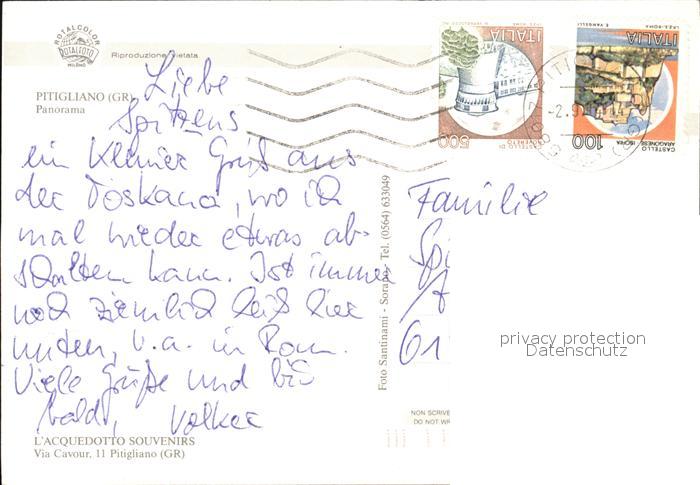 ROTALCOLOR
ROTALFOTO
MILANO
Riproduzione vietata
PITIGLIANO (GR)
Panorama
Liebe
Spitzens
ein kleiner Gruß aus
der Toskana, wo ich
mal wieder etwas ab-
schalten kann. Ist immer
noch ziemlich heiß hier
unten, u.a. in Rom.
Viele Grüße und bis
bald, Volker
L'ACQUEDOTTO SOUVENIRS
Via Cavour, 11 Pitigliano (GR)
Foto Santinami - Sorano - Tel. (0564) 633049
ITALIA
CASTELLO DI
ROVERETO
500
I.P.Z.S. - ROMA
ITALIA
CASTELLO
ARAGONESE ISCHIA
100
I.P.Z.S. - ROMA
E. VANGELLI
Familie
Spi
61
NON SCRIVE
DO NOT WR
privacy protection
Datenschutz